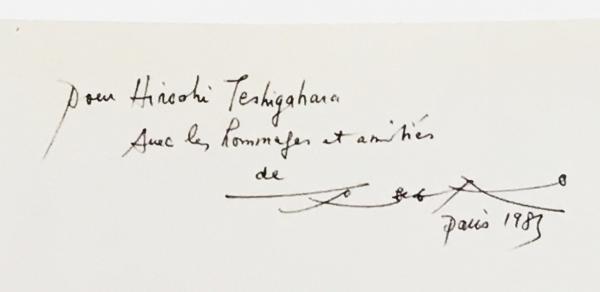 pour Hiroshi Teshigahara
Avec les hommages et amitiés
de
Paris 1983